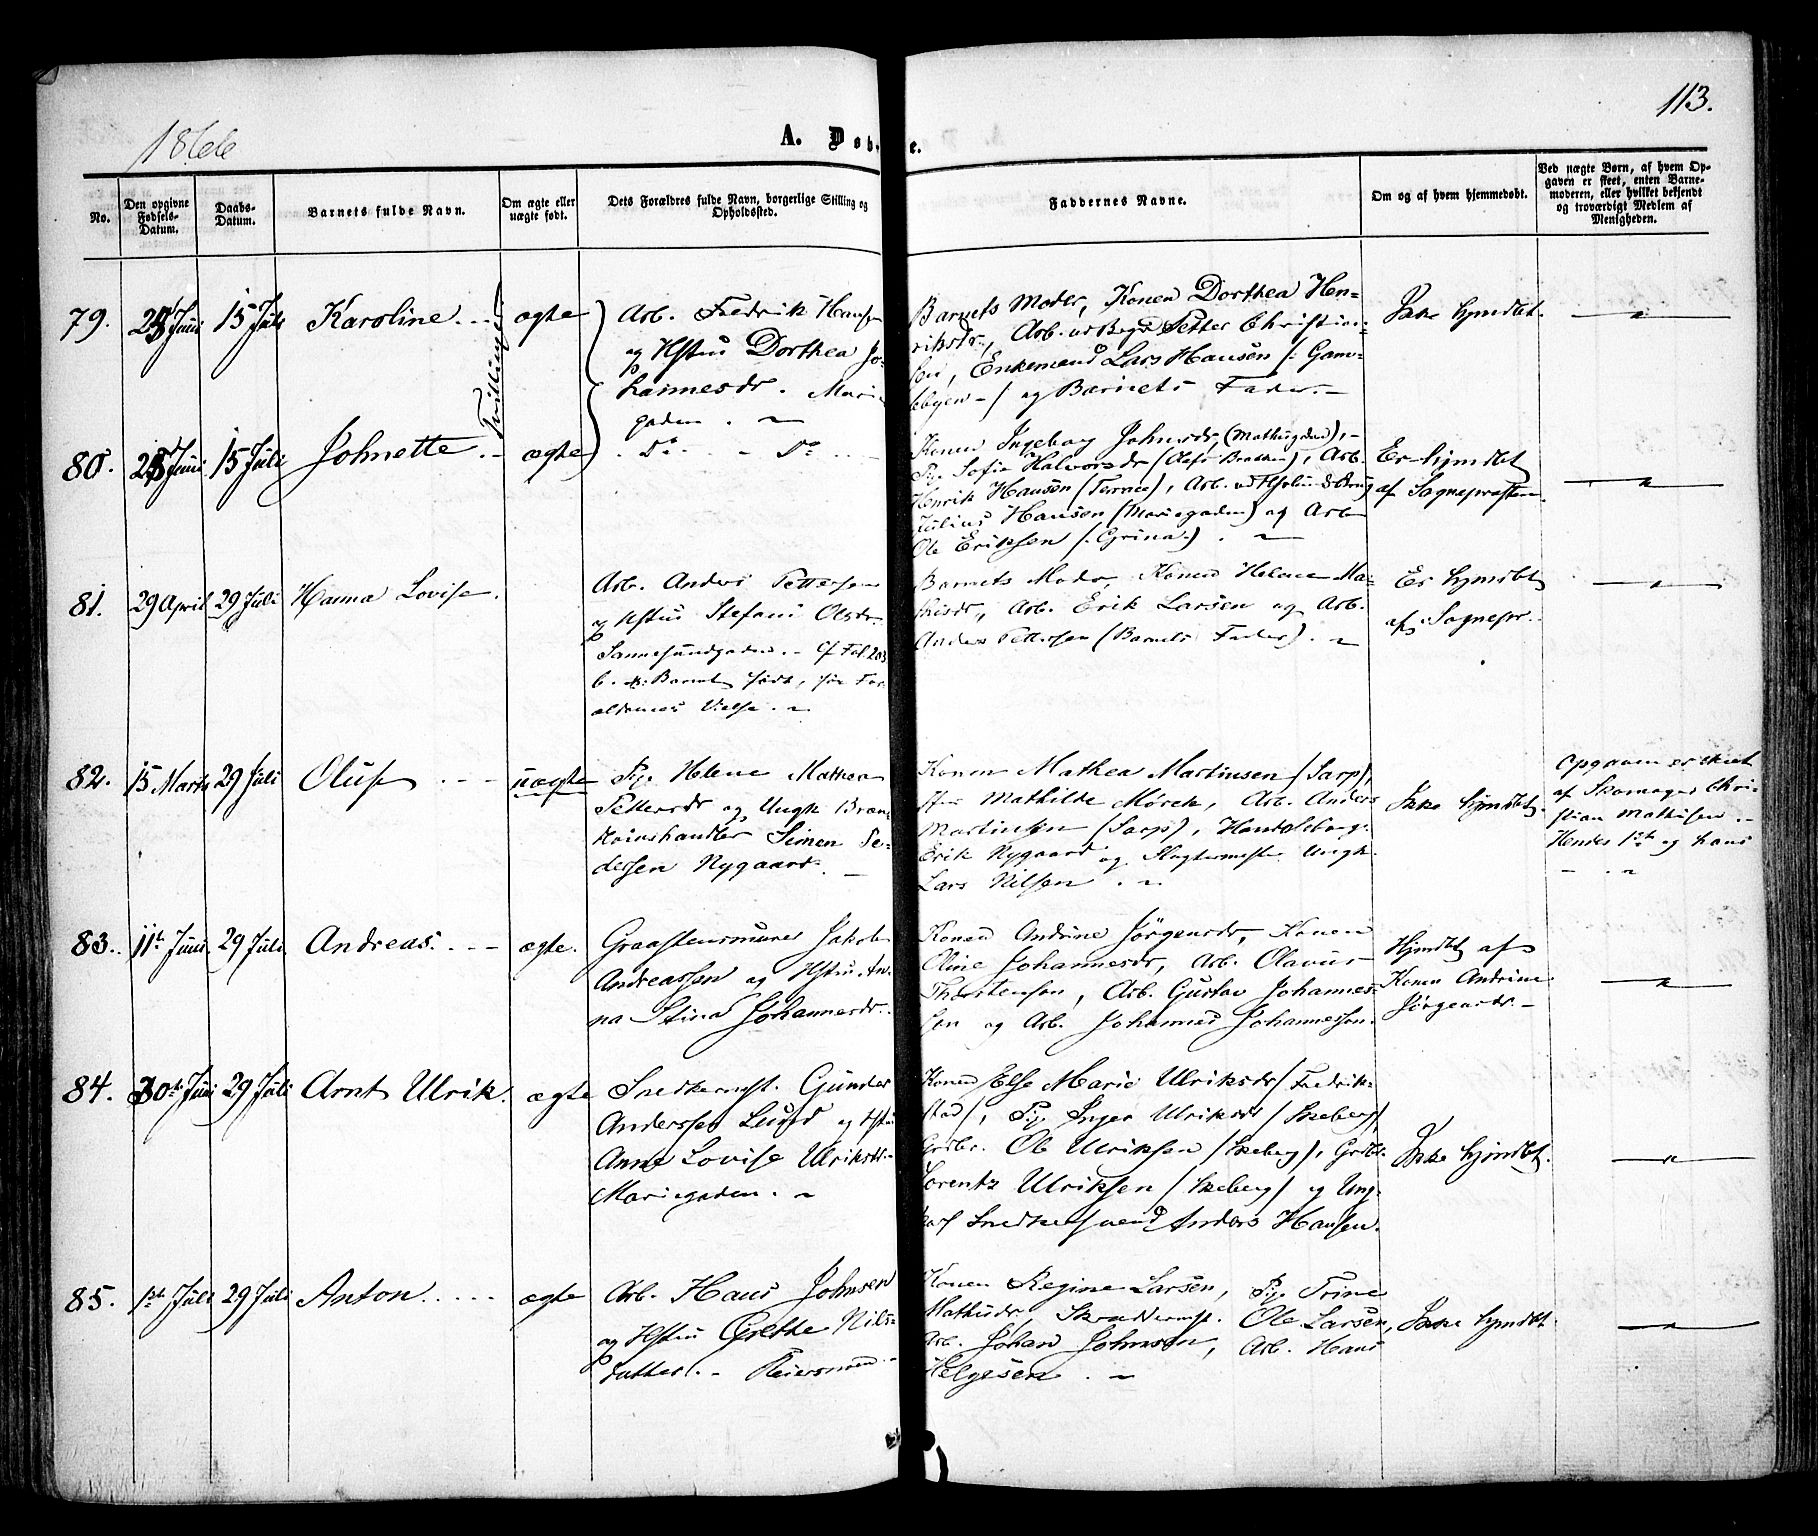 113.
1866
A. Døbte.
No.
Den opgivne Fødsels-Datum.
Daabs-Datum.
Barnets fulde Navn.
Om ægte eller uægte født.
Dets Forældres fulde Navn, borgerlige Stilling og Opholdssted.
Faddernes Navne.
Om og af hvem hjemmedøbt.
Ved uægte Børn, af hvem Opgaven er skeet, enten Barnemoderen, eller hvilket bekjendt og troværdigt Medlem af Menigheden.
79. Juni 15 Juli Karoline ægte
Tvillinger
Arb. Fredrik Hansen
og Hstru Dorthea Jo-
hannesdr. Marie
gaden.
Barnets Moder, Konen Dorthea Hen-
riksdr, Arb. Petter Christian-
sen, Enkemand Lars Hansen (: Gam-
lebyen -) og Barnets Fader.
Ikke hjmdbt.
80. Juni 15 Juli Johnette ægte
Do. - Do.
Konen Ingeborg Johnsdr, (Mathisgaden),
Pig. Sofie Halvorsdr (Olafs Bratten), Arb.
Henrik Hansen (Terne), Arb.
Julius Hansen (Mariegaden) og Arb
Ole Eriksen (: Grina.)
Er hjmdbt
af Sognepræsten
81. 29 April 29 Juli Hanna Lovise.
Arb. Anders Pettersen
og Hstru Stefani Olsdr.
Sannesundgaden. - Cf Fol 203
b. Barnet født, før For-
ældrenes Vielse.
Barnets Moder, Konen Helene Ma-
thisdr, Arb. Erik Larsen og Arb.
Anders Pettersen (Barnets Fader).
Er hjmdbt
af Sognepr.
82. 15 Marts 29 Juli Oluf uægte
Pig. Helene Mathea
Pettersdr og Ungk. Bræn-
devinshandler Simen Pe-
dersen Nygaard.
Konen Mathea Martinsen (Sarp),
Mathilde Mørck, Arb. Anders
Martinsen (Sarp), Handelsborg.
Erik Nygaard og Slagtermester Ungk.
Lars Nilsen.
Ikke hjmdbt.
Opgaven er skeet
af Skomager Chri-
stian Mathisen.
Hendes 1ste og hans
83. 11te Juni 29 Juli Andreas. ægte.
Graastensmurer Jakob
Andreassen og Hstru An-
na Stina Johannesdr.
Konen Andrine Jörgensdr, Konen
Oline Johannesdr, Arb. Olavus
Thorstensen, Arb. Gustav Johannes-
sen og Arb. Johannes Johannessen.
Hjmdbt af
Konen Andrine
Jörgensdr.
84. 30te Juni 29 Juli Arnt Ulrik. ægte
Snedkermst. Gunder
Anderssen Lund og Hstru
Anne Lovise Ulriksdr
Mariegaden.
Konen Else Marie Ulriksdr (Fredrik-
stad), Pig. Inger Ulriksdr (Skeberg),
Grdbr. Ole Ulriksen (Skeberg), Grdbr.
Lorentz Ulriksen (Skeberg) og Ung-
karl Snedkersvend Anders Hansen.
Ikke hjmdbt.
85. 1ste Juli 29 Juli Anton ægte
Arb. Hans Johnsen
og Hstru Grethe Nils-
datter. - Reiersmoen.
Konen Regine Larsen, Pig. Trine
Mathisdr, Skræddermst. Ole Larsen,
Arb. Johan Johnsen, Arb. Hans
Helgesen.
Ikke hjmdbt.